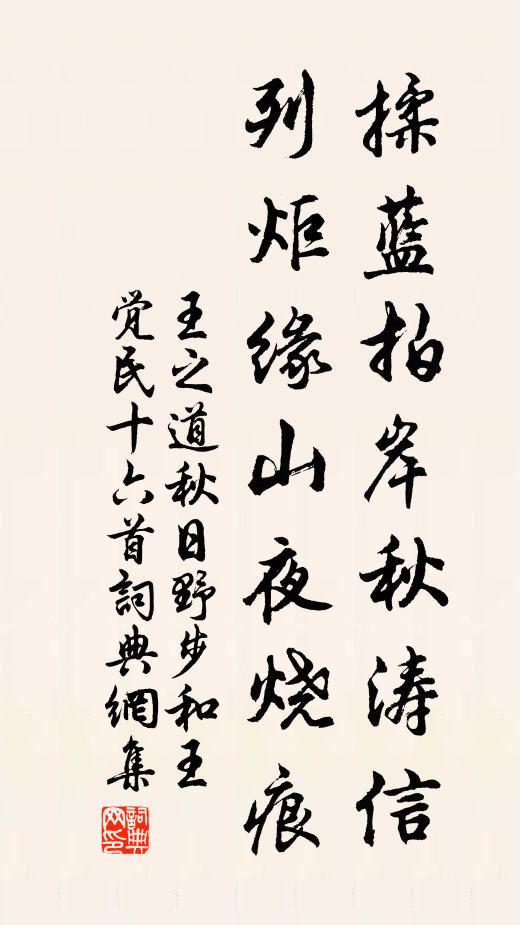 揉蓝拍岸秋涛信
列炬缘山夜烧痕
王之道秋日野步和王
觉民十六首詞典網集
詞典网印